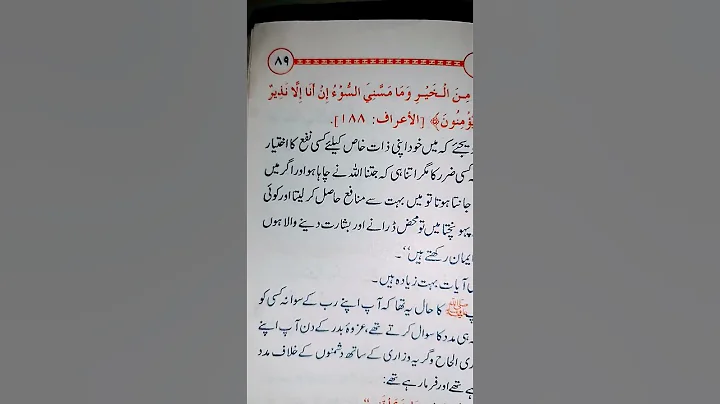 ٨٩
مِنَ الْخَيْرِ وَمَا مَسَّنِيَ السُّوْءُ إِنْ أَنَا إِلَّا نَذِيْرٌ
يُؤْمِنُونَ﴾ [الأعراف: ١٨٨].
دیجئے کہ میں خود اپنی ذات خاص کیلئے کسی نفع کا اختیار
کسی ضرر کا مگر اتنا ہی کہ جتنا اللہ نے چاہا ہو اور اگر میں
جانتا ہوتا تو میں بہت سے منافع حاصل کر لیتا اور کوئی
پہونچتا میں تو محض ڈرانے اور بشارت دینے والا ہوں
ایمان رکھتے ہیں‘‘۔
آیات بہت زیادہ ہیں۔
ﷺ کا حال یہ تھا کہ آپ اپنے رب کے سوا نہ کسی کو
ہی مدد کا سوال کرتے تھے، غزوۂ بدر کے دن آپ اپنے
ری الحاح وگریہ وزاری کے ساتھ دشمنوں کے خلاف مدد
ہے تھے اور فرما رہے تھے: